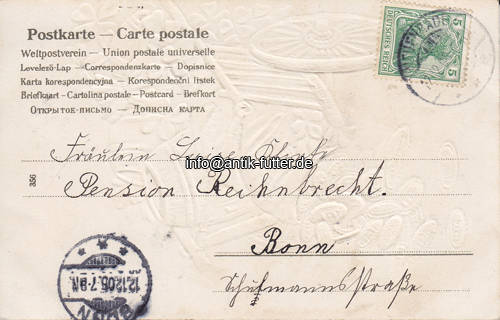 Postkarte — Carte postale
Weltpostverein — Union postale universelle
Levelező-Lap — Correspondenzkarte — Dopisnice
Karta korespondencyjna — Korespondenční lístek
Briefkaart — Cartolina postale — Postcard — Brefkort
Открытое-письмо — Дописна карта
5 DEUTSCHES REICH 5
Fräulein
info@antik-futter.de
Pension Reihnbrecht.
356
Bonn
Schumannsstraße
BONN
12.12.05.7-8N.